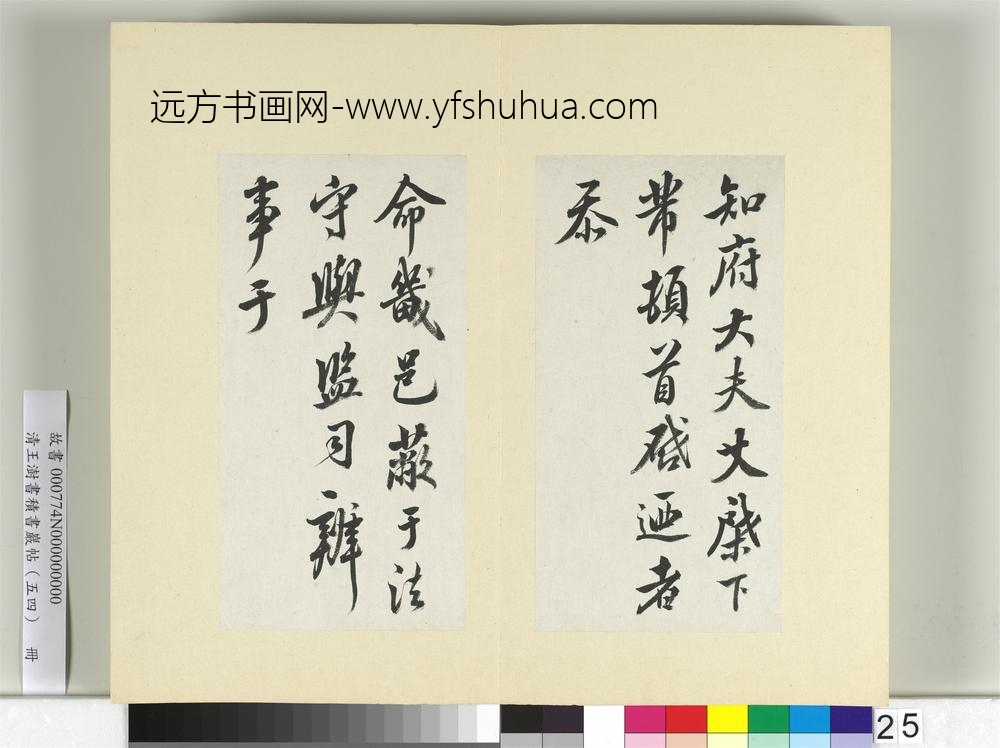 远方书画网-www.yfshuhua.com
知府大夫丈棨下
芾頓首啟迺者
忝
命畿邑蔽于法
守與監司辨
事于
故書 000774N000000000
清王澍書積書巖帖（五四） 冊
25